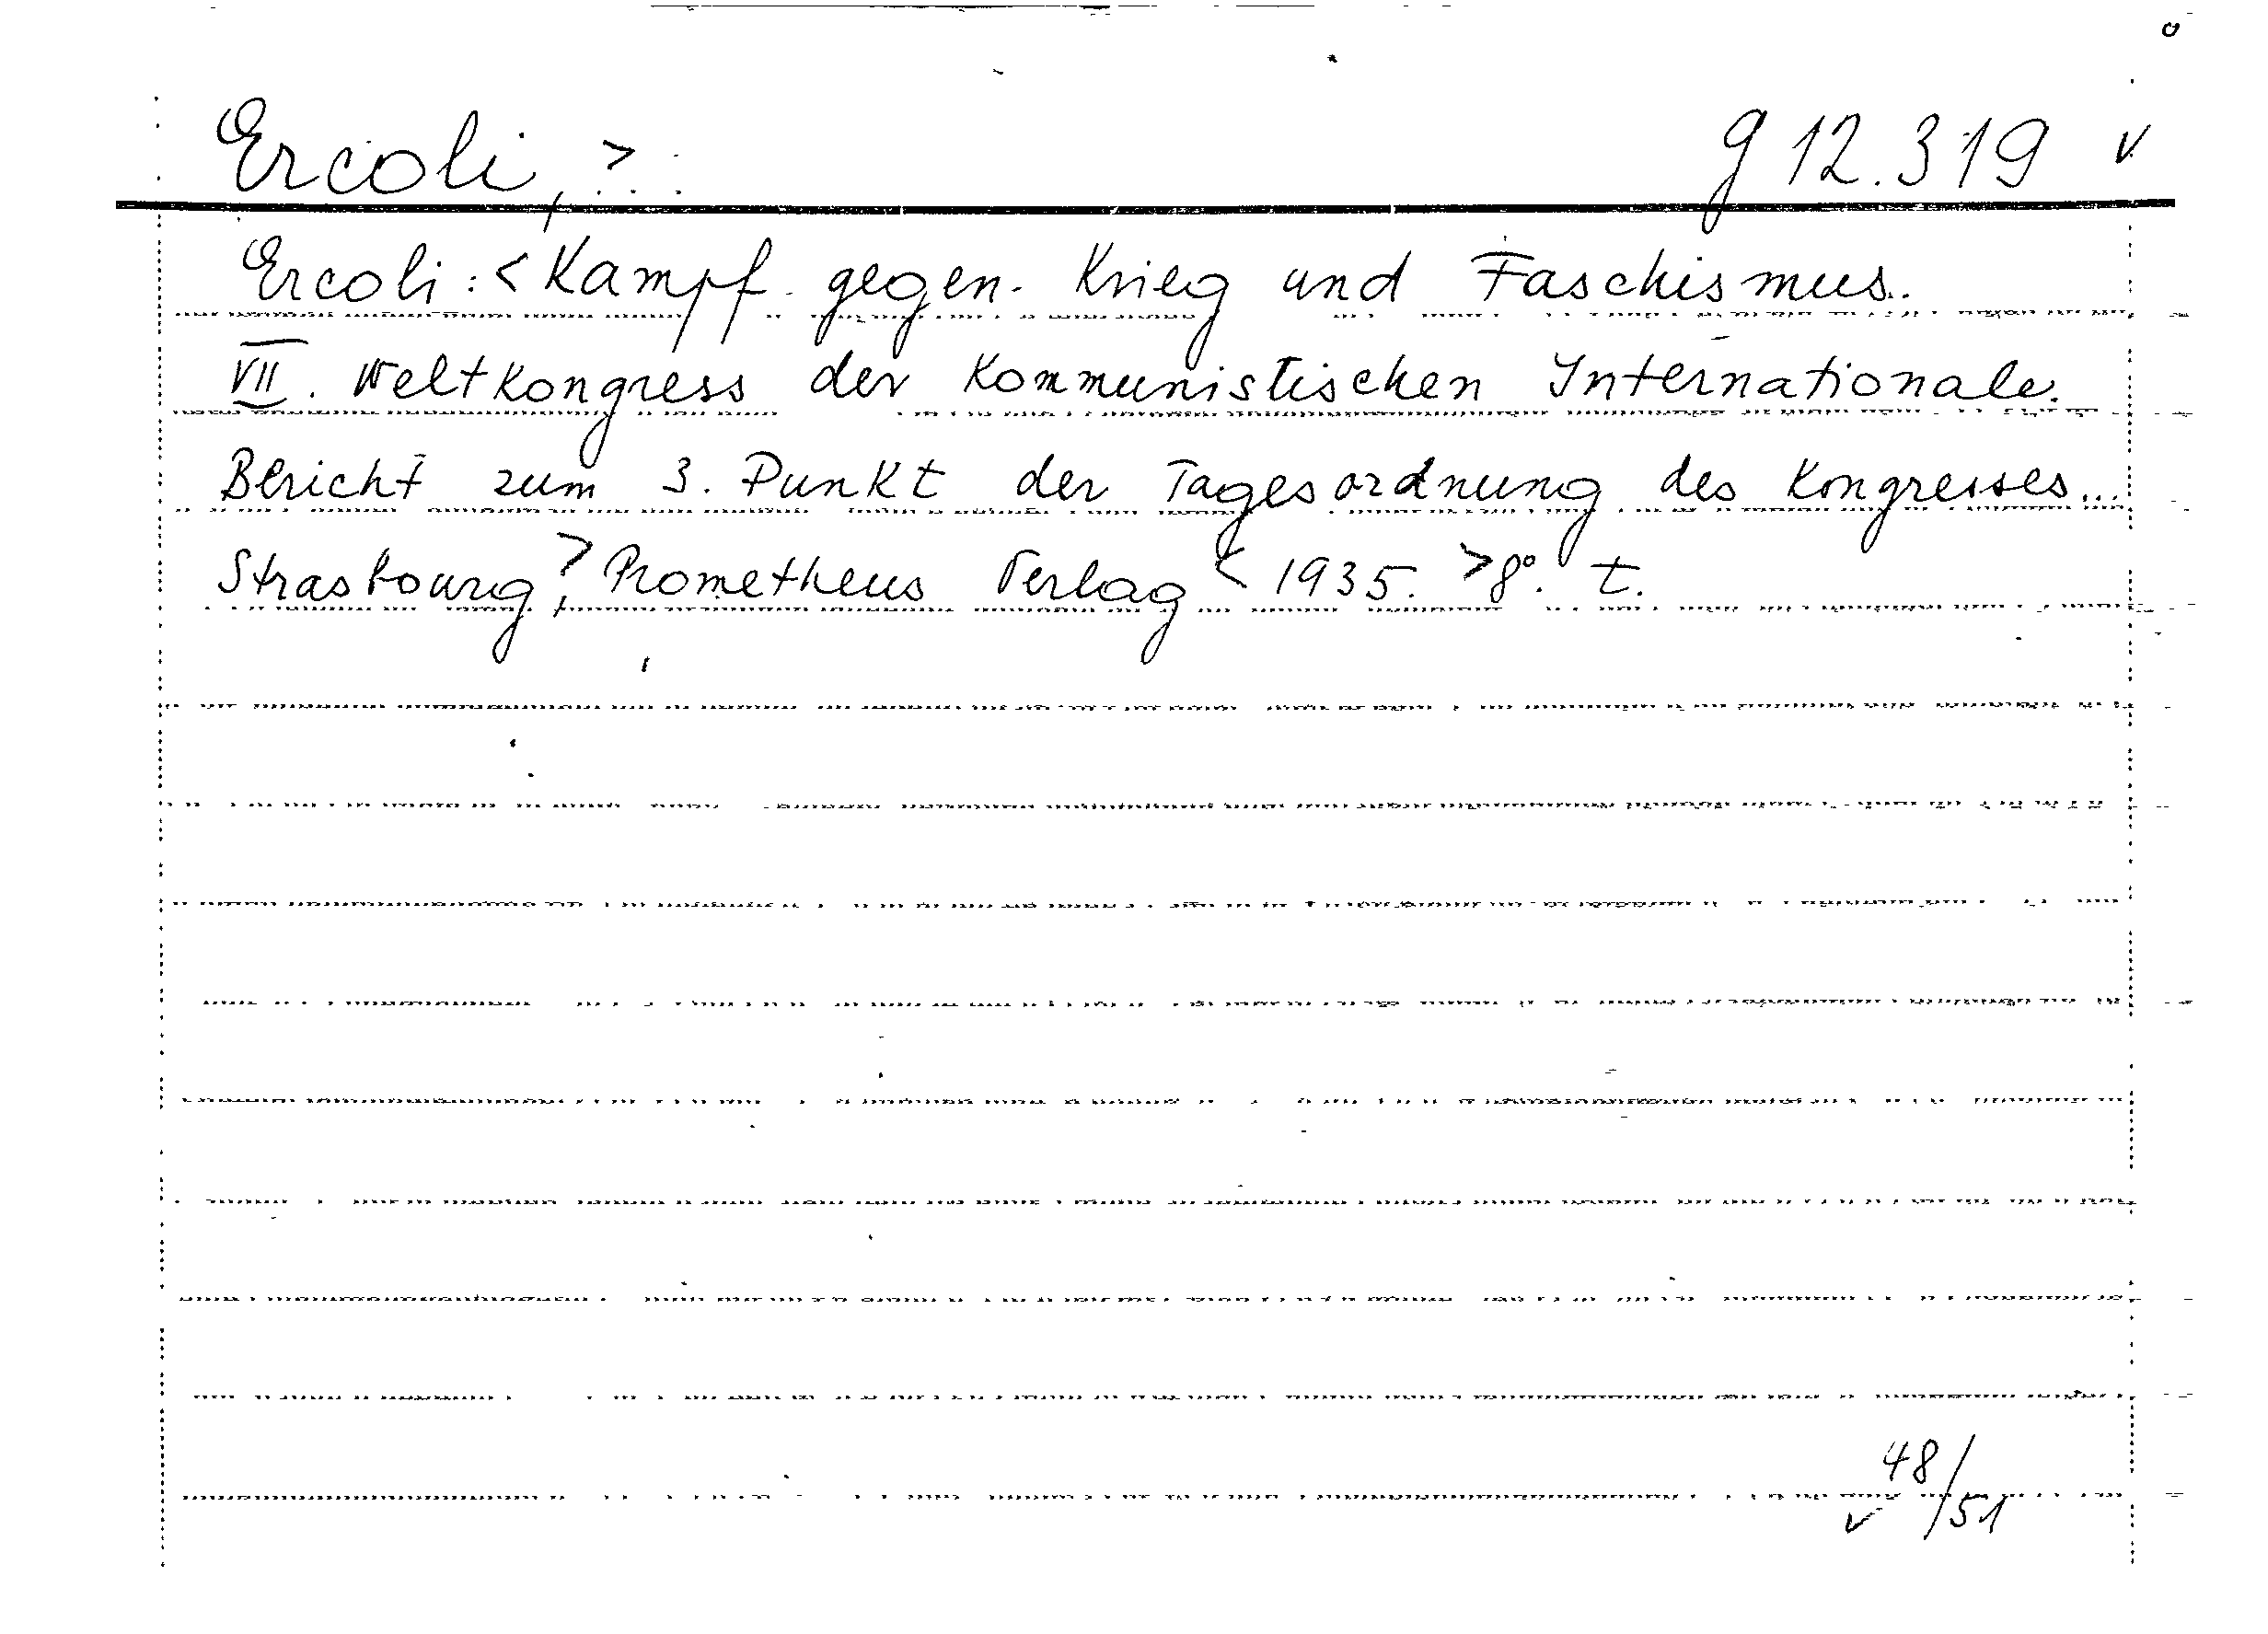 Ercoli, >.. g 12.319 v
Ercoli: < Kampf gegen Krieg und Faschismus.
VII. Weltkongress der Kommunistischen Internationale.
Bericht zum 3. Punkt der Tagesordnung des Kongresses...
Strasbourg, > Prometheus Verlag < 1935. > 8°. t.
48/51
v